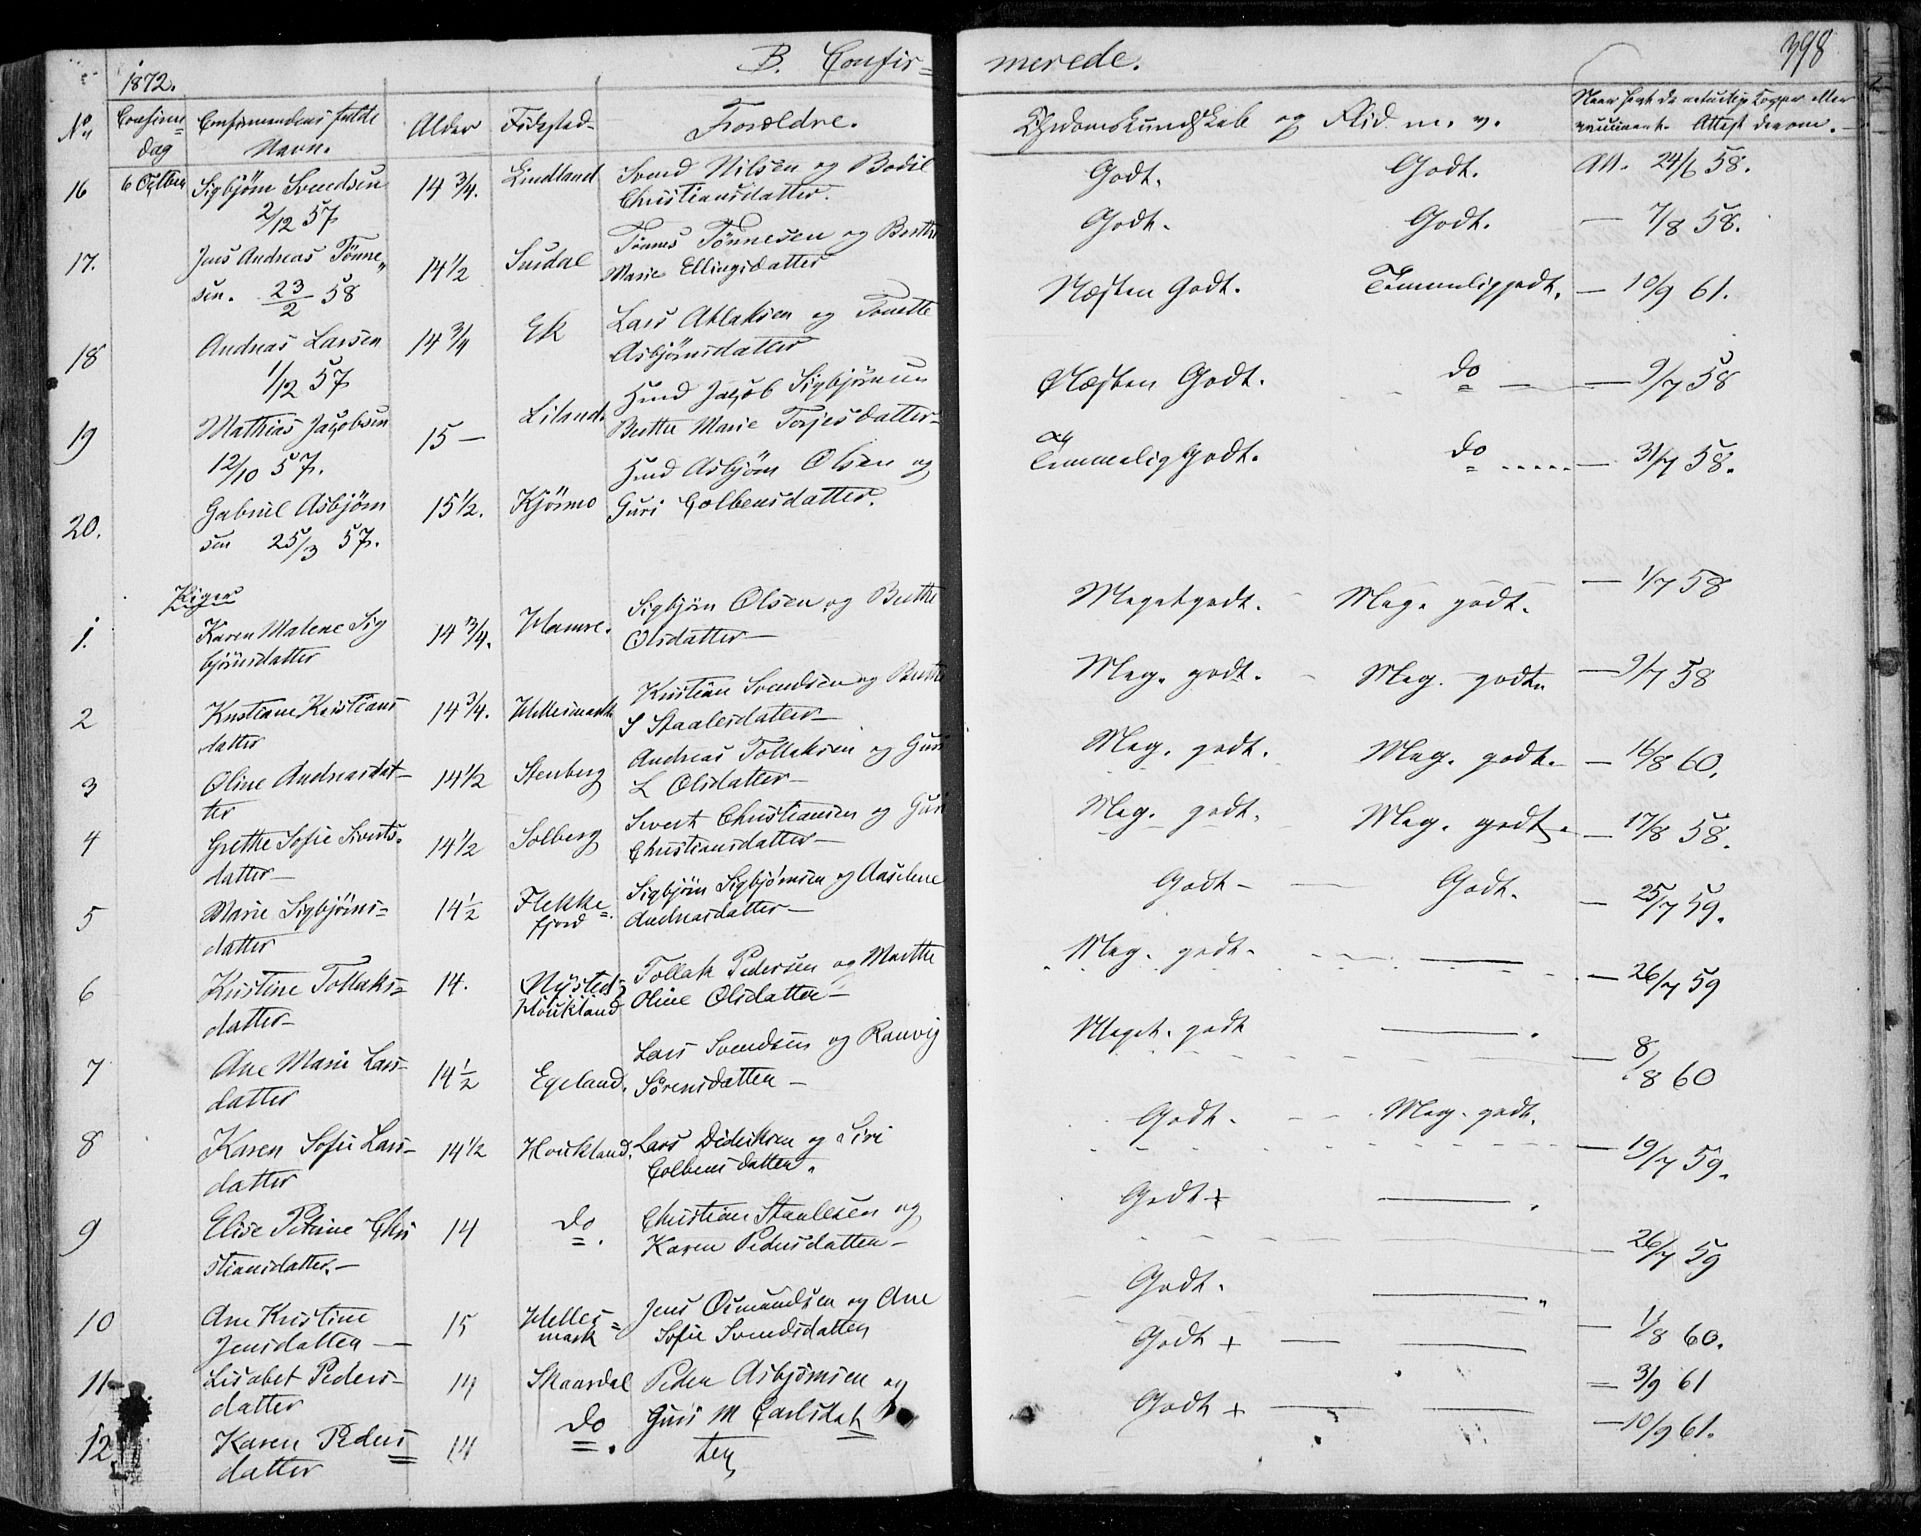 B. Confirmerede. 398
1872.
No Confirm= dag Confirmandens fulde Navn. Alder Fødested Forældre. Christendomskundskab og Flid m. v. Naar havt de naturlige Kopper eller vaccineret. Attest derom.
16 6 Octbr Sigbjørn Svendsen 14 3/4. Lindland Svend Nilsen og Bodil Godt. Godt. Att. 24/6 58.
2/12 57 Christiansdatter.
17. Jens Andreas Tønne„ 14 1/2 Surdal Tønnes Tønnesen og Berthe Godt. Godt. — 7/8 58.
sen. 23/2 58 Marie Ellingsdatter
18 Andreas Larsen 14 3/4 Ek Lars Atlaksen og Tonette Næsten Godt. Temmelig godt. — 10/9 61.
1/12 57 Asbjørnsdatter
19 Mathias Jacobsen 15 — Liland. Huud Jacob Sigbjørnsen Næsten Godt. do — — 9/7 58
12/10 57. Berthe Marie Torjesdatter
20. Gabriel Asbjørn 15 1/2. Kjørmo Huud Asbjørn Olsen og Temmelig Godt. do — 31/7 58.
sen 25/3 57. Guri Colbensdatter.
Piger
1. Karen Malene Sig 14 3/4. Hamre. Sigbjørn Olsen og Berthe Meget godt. Meg. godt. — 1/7 58
bjørnsdatter Olsdatter —
2 Kristiane Kristians 14 3/4. Hellesmark Kristian Svendsen og Berthe Meg. godt. Meg. godt. — 9/7 58
datter S Staalesdatter —
3 Oline Andreasdat— 14 1/2 Stenberg Andreas Tollaksen og Guri Meg. godt. Meg. godt. — 16/8 60.
ter L Olsdatter —
4 Grethe Sofie Siverts- 14 1/2 Solberg Sivert Christiansen og Guri Meg. godt. Meg. godt. — 17/8 58.
datter — Christiansdatter —
5 Marie Sigbjørns= 14 1/2 Flekke= Sigbjørn Sigbjørnsen og Aaselene Godt — Godt. — 25/7 59.
datter fjord Andreasdatter —
6 Kristine Tollaks= 14. Nysted Tollak Pedersen og Marthe Meg. godt. — — — 26/7 59
datter — Houkland Oline Olsdatter —
7 Ane Marie Lars- 14 1/2 Egeland. Lars Svendsen og Ranvig Meget. godt — — 8/8 60
datter Sørensdatter —
8 Karen Sofie Lars- 14 1/2 Houkland. Lars Didriksen og Siri Godt. — Meg. godt. — 19/7 59.
datter Colbensdatter.
9 Elise Petrine Chri 14 do. Christian Staalesen og Godt + — — 26/7 59
stiansdatter. — Karen Pedersdatter —
10 Ane Kristine 15 Helles= Jens Osmundsen og Ane Godt. — — 1/8 60.
Jensdatter — mark Sofie Svendsdatter
11 Lisabet Peders- 14 Skaardal Peder Asbjørnsen og Godt + — — — 3/9 61
datter Guri M Carlsdat
12 Karen Peders 14 do. ter Godt + — — — 10/9 61.
datter